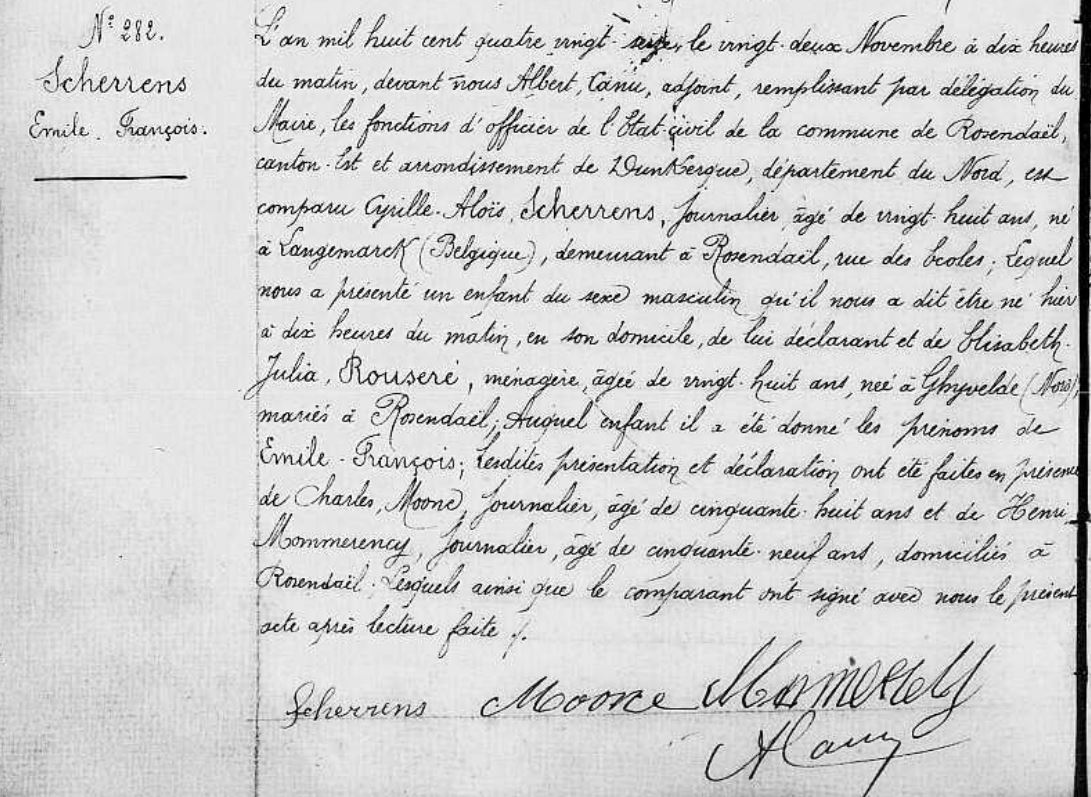 N° 282.
Scherrens
Emile. François.
L'an mil huit cent quatre vingt-seize, le vingt-deux Novembre à dix heures
du matin, devant nous Albert, Canu, adjoint, remplissant par délégation du
Maire, les fonctions d'officier de l'Etat-civil de la commune de Rosendaël,
canton-Est et arrondissement de Dunkerque, département du Nord, est
comparu Cyrille-Aloïs, Scherrens, Journalier, âgé de vingt-huit ans, né
à Langemarck (Belgique), demeurant à Rosendaël, rue des Ecoles; Lequel
nous a présenté un enfant du sexe masculin, qu'il nous a dit être né hier
à dix heures du matin, en son domicile, de lui déclarant et de Elisabeth-
Julia, Rouseré, ménagère, âgée de vingt-huit ans, née à Ghyvelde (Nord),
mariés à Rosendaël; Auquel enfant il a été donné les prénoms de
Emile-François; Lesdites présentation et déclaration ont été faites en présence
de Charles, Moone, Journalier, âgé de cinquante-huit ans et de Henri,
Mommerency, Journalier, âgé de cinquante-neuf ans, domiciliés à
Rosendaël; Lesquels ainsi que le comparant ont signé avec nous le présent
acte après lecture faite ./.
Scherrens Moone
ACanu